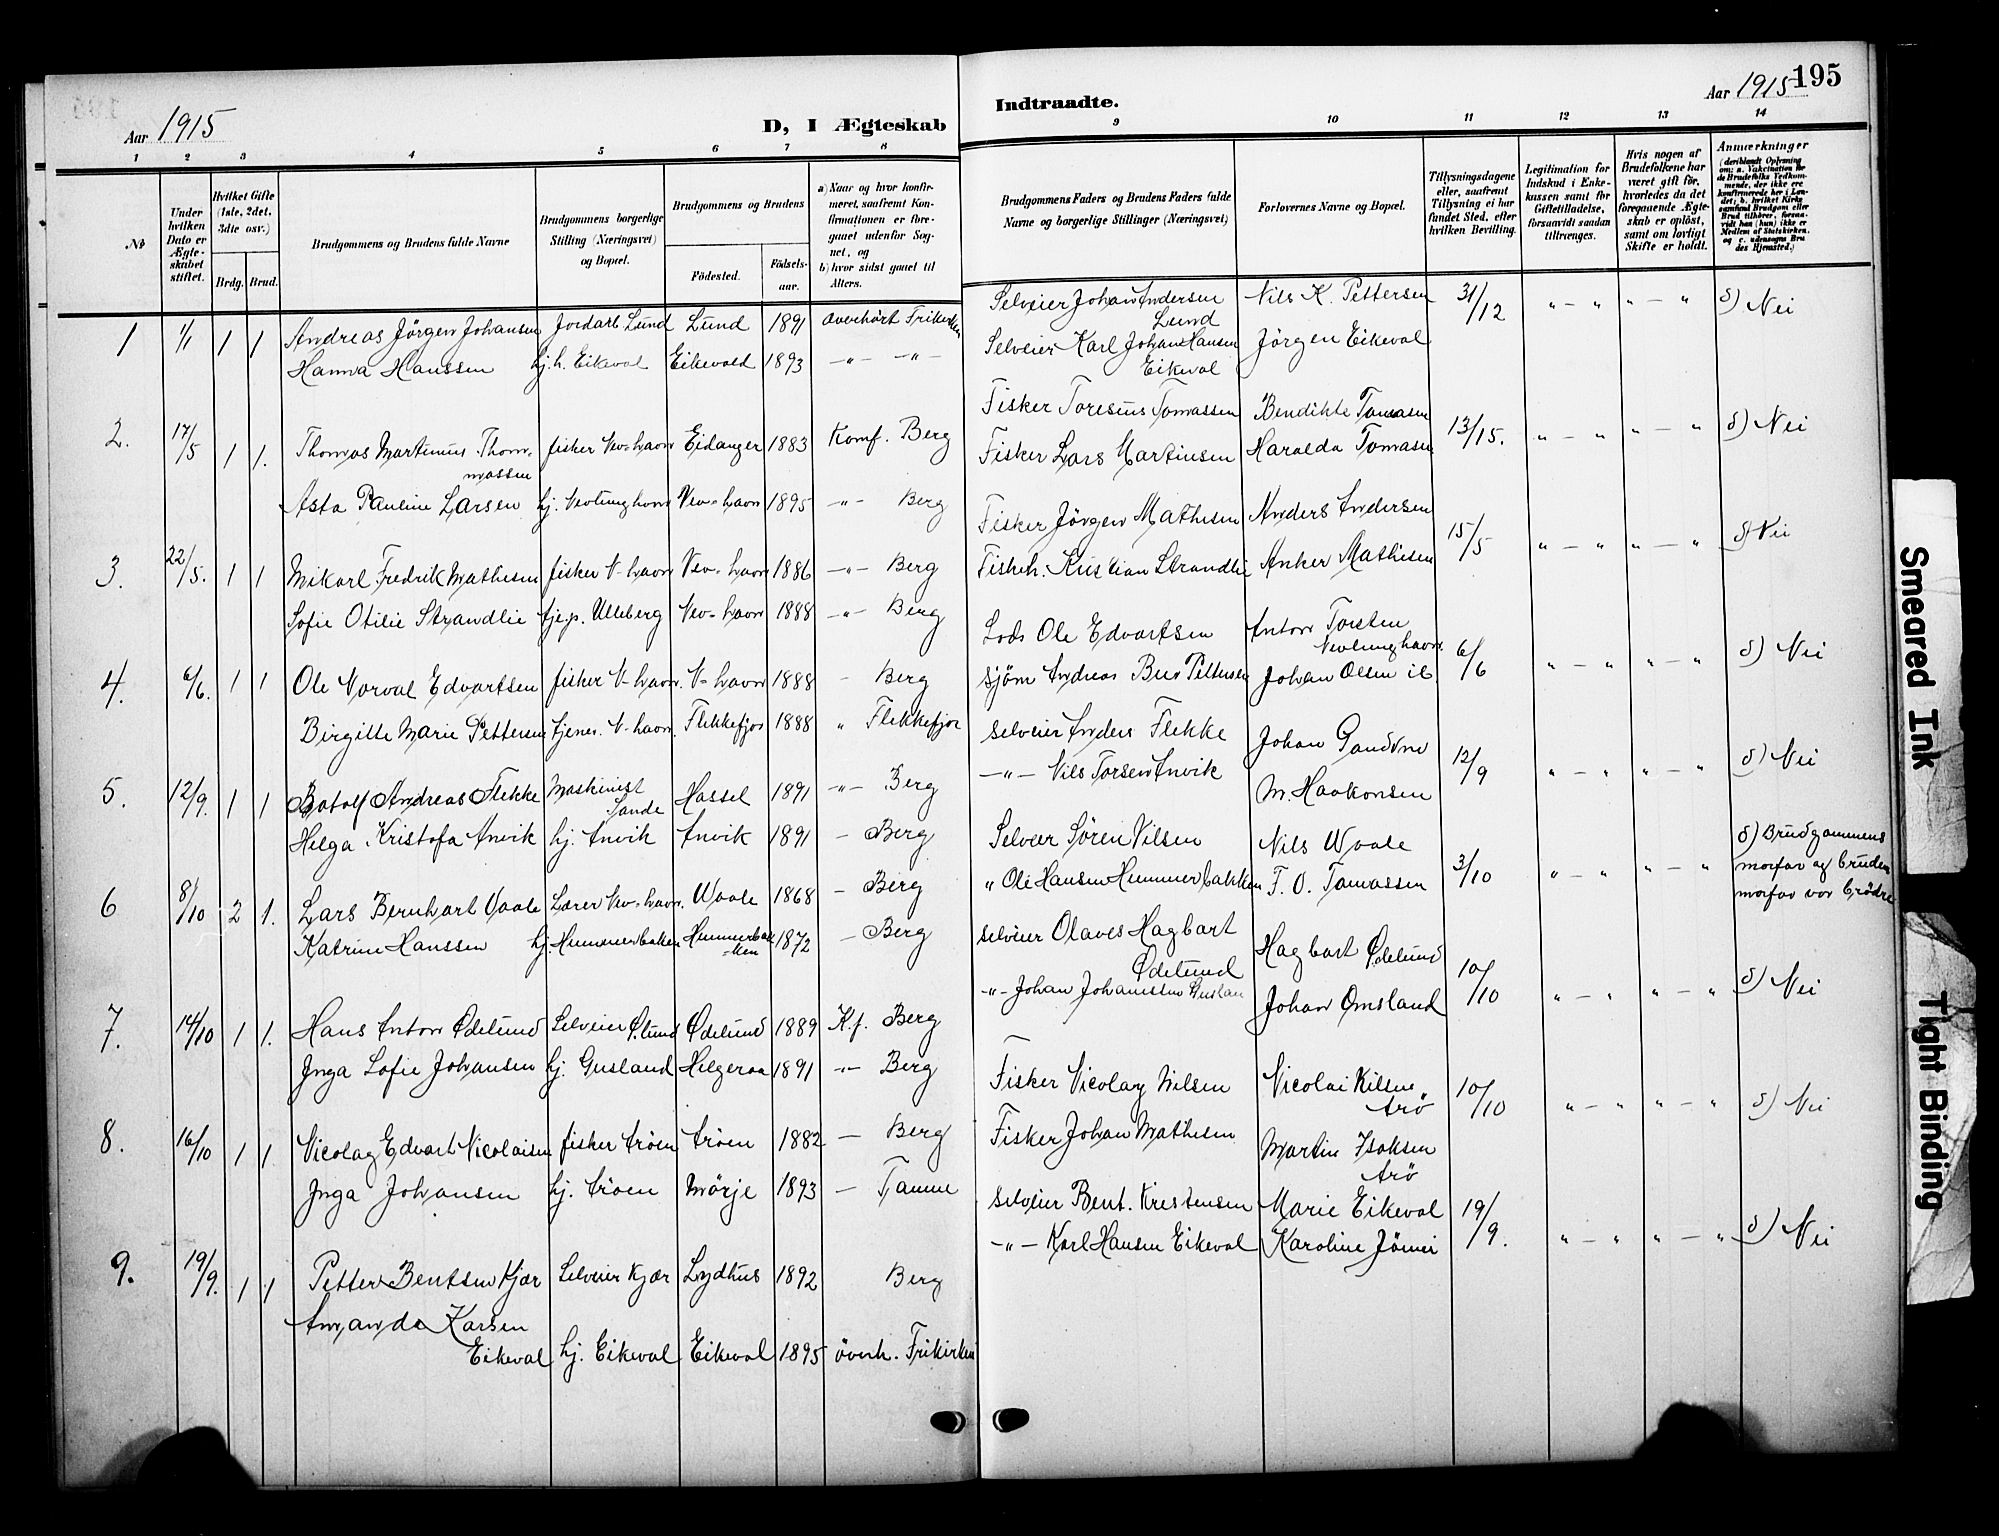 Aar 1915
D, I Ægteskab
Indtraadte.
Aar 1915
195
1 2 3 4 5 6 7 8 9 10 11 12 13 14
No
Under hvilken Dato er Ægteskabet stiftet.
Hvilket Gifte (1ste, 2det, 3die osv.)
Brdg. Brud.
Brudgommens og Brudens fulde Navne
Brudgommens borgerlige Stilling (Næringsvei) og Bopæl.
Brudgommens og Brudens
Födested.
Födselsaar.
a) Naar og hvor konfirmeret, saafremt Konfirmationen er foregaaet udenfor Sognet, og
b) hvor sidst gaaet til Alters.
Brudgommens Faders og Brudens Faders fulde Navne og borgerlige Stillinger (Næringsvei)
Forlovernes Navne og Bopæl.
Tillysningsdagene eller, saafremt Tillysning ei har fundet Sted, efter hvilken Bevilling.
Legitimation for Indskud i Enkekassen samt for Giftetilladelse, forsaavidt saadan tiltrænges.
Hvis nogen af Brudefolkene har været gift för, hvorledes da det foregaaende Ægteskab er oplöst, samt om lovligt Skifte er holdt.
Anmærkninger
1 1/1 1 1 Andreas Jörgen Johansen Jordarb Lund Lund 1891 Overhört Frikirken
Hanna Hanssen hj. h. Eikeval Eikevald 1893 -"- -"-
Selveier Johan Andersen Lund Nils K. Pettersen 31/12 " - " " - " d) Nei
Selveier Karl Johan Hansen Eikeval Jörgen Eikeval
2. 17/5 1 1. Thomas Martinius Thommassen fisker Nev=havn Eidanger 1883 Konf. Berg
Asta Pauline Larsen hj. Nevlunghavn Nev=havn 1895 -"- Berg
Fisker Toresius Tomassen Bendikte Tomasen 13/15. " - " " - " d) Nei
Fisker Lars Martinsen Haralda Tomasen
3. 22/5. 1 1 Mikarl Fredrik Mathesen fisker N-havn Nev=havn 1886 -"- Berg
Sofie Otilie Strandlie tje.p. Ulleberg Nev=havn 1888 -"- Berg
Fisker Jörgen Mathesen Anders Andersen 15/5 " - " " - " d) Nei
Fiskeh. Kristian Strandli Anker Mathisen
4. 6/6. 1 1 Ole Norval Edvartsen fisker N-havn. N=havn 1888 - Berg
Birgitte Marie Pettersen tjenes. N-havn. Flekkefjor 1888 " Flekkefjor
Lods Ole Edvartsen Anton Torsten Nevlunghavn. 6/6 " - " " - " d) Nei
sjöm Andreas Pettersen Johan Olsen ib.
5. 12/9. 1 1 Botolf Andreas Flekke Maskinist Sande Hassel 1891 -"- Berg
Helga Kristofa Anvik hj. Anvik Anvik 1891 - Berg
selveier Anders Flekke Johan 12/9 " - " " - " d) Nei
-"- Nils Torsen Anvik M. Haakonsen
6 8/10 2 1. Lars Bernhart Vaale Lærer Nev=havn. Waale 1868 - Berg
Katrine Hanssen hj. Hummerbakken Hummerbakken 1872 - Berg
Selveier Sören Nilsen Nils Waale 3/10 " - " " - " d) Brudgommens
" Ole Hansen Hummerbakken T. O. Tomassen morfar og brudens
morfar var brödre
7. 14/10 1 1. Hans Anton Ödelund Selveier Ö.lund Ödelund 1889 K.f. Berg
Inga Sofie Johansen hj. Gusland Helgeroa 1891 -"- Berg
selveier Olaves Hagbart Ödelund Hagbart Ödelund 10/10 " - " " - " d) Nei
-"- Johan Johanssen Guslan Johan Omsland
8. 16/10 1 1. Nicolay Edvart Nicolaisen fisker Aröen Aröen 1882 - Berg
Inga Johansen hj. Aröen Mörje 1893 - Tanum
Fisker Nicolay Nilsen Nicolai Nilsen Arö 10/10 " - " " - " d) Nei
Fisker Johan Mathesen Martin Isaksen Arö
9. 19/9. 1 1 Petter Bentsen Kjær Selveier Kjær Lydhus 1892 Berg
Amanda Karsen Eikeval hj. Eikeval Eikeval 1895 överh. Frikirken
selveier Bent. Kristensen Marie Eikeval 19/9. " - " " - " d) Nei
-"- Karl Hansen Eikeval Karoline
Smeared Ink
Tight Binding